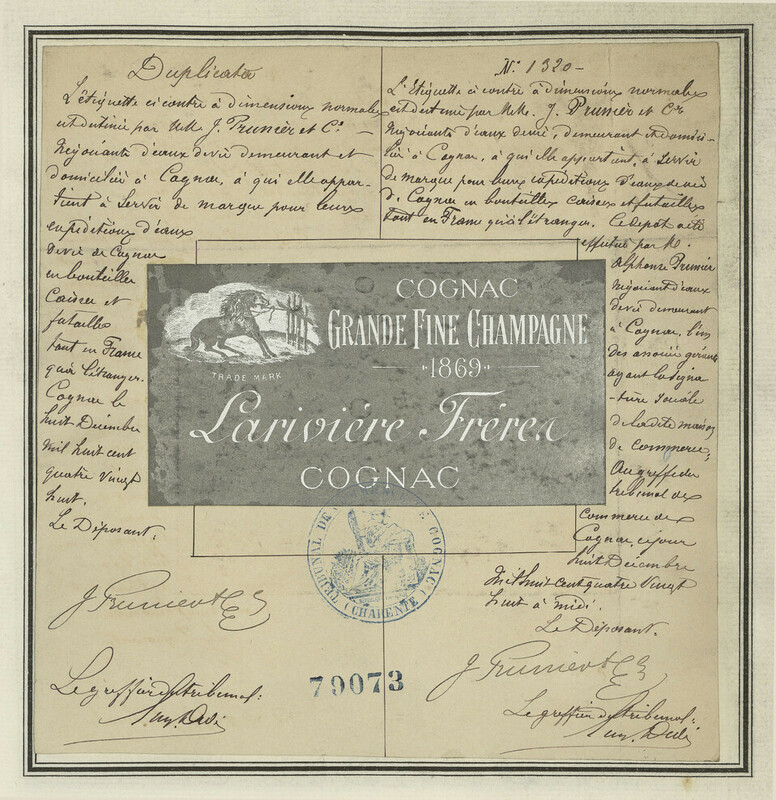 Duplicata
L'étiquette ci contre à dimensions normales
est destinée par MM. J. Prunier et Cie
Négociants d'eaux de vie demeurant et
domiciliés à Cognac, à qui elle appar-
tient à servir de marque pour leurs
expéditions d'eaux
de vie de Cognac
en bouteilles
Caisses et
futailles
tant en France
qu'à l'étranger.
Cognac le
huit Décembre
Mil huit cent
quatre vingt
huit.
Le Déposant.
J. Prunier & Cie
Le greffier du tribunal:
No. 1320
L'étiquette ci contre à dimensions normales
est destinée par MM. J. Prunier et Cie
Négociants d'eaux de vie, demeurant et domici-
liés à Cognac, à qui elle appartient, à servir
de marque pour leurs expéditions d'eaux de vie
de Cognac en bouteilles caisses et futailles
tant en France qu'à l'étranger. Le dépôt a été
effectué par M.
Alphonse Prunier
Négociant d'eaux
de vie demeurant
à Cognac, l'un
des associés gérants
ayant la signa
-ture sociale
de la dite maison
de commerce,
Au greffe du
tribunal de
Commerce de
Cognac, ce jour
huit Décembre
Mil huit cent quatre vingt
huit à midi.
Le Déposant.
J. Prunier & Cie
Le greffier du tribunal:
COGNAC
GRANDE FINE CHAMPAGNE
1869
TRADE MARK
Larivière Frères
COGNAC
TRIBUNAL DE COGNAC
(CHARENTE)
79073